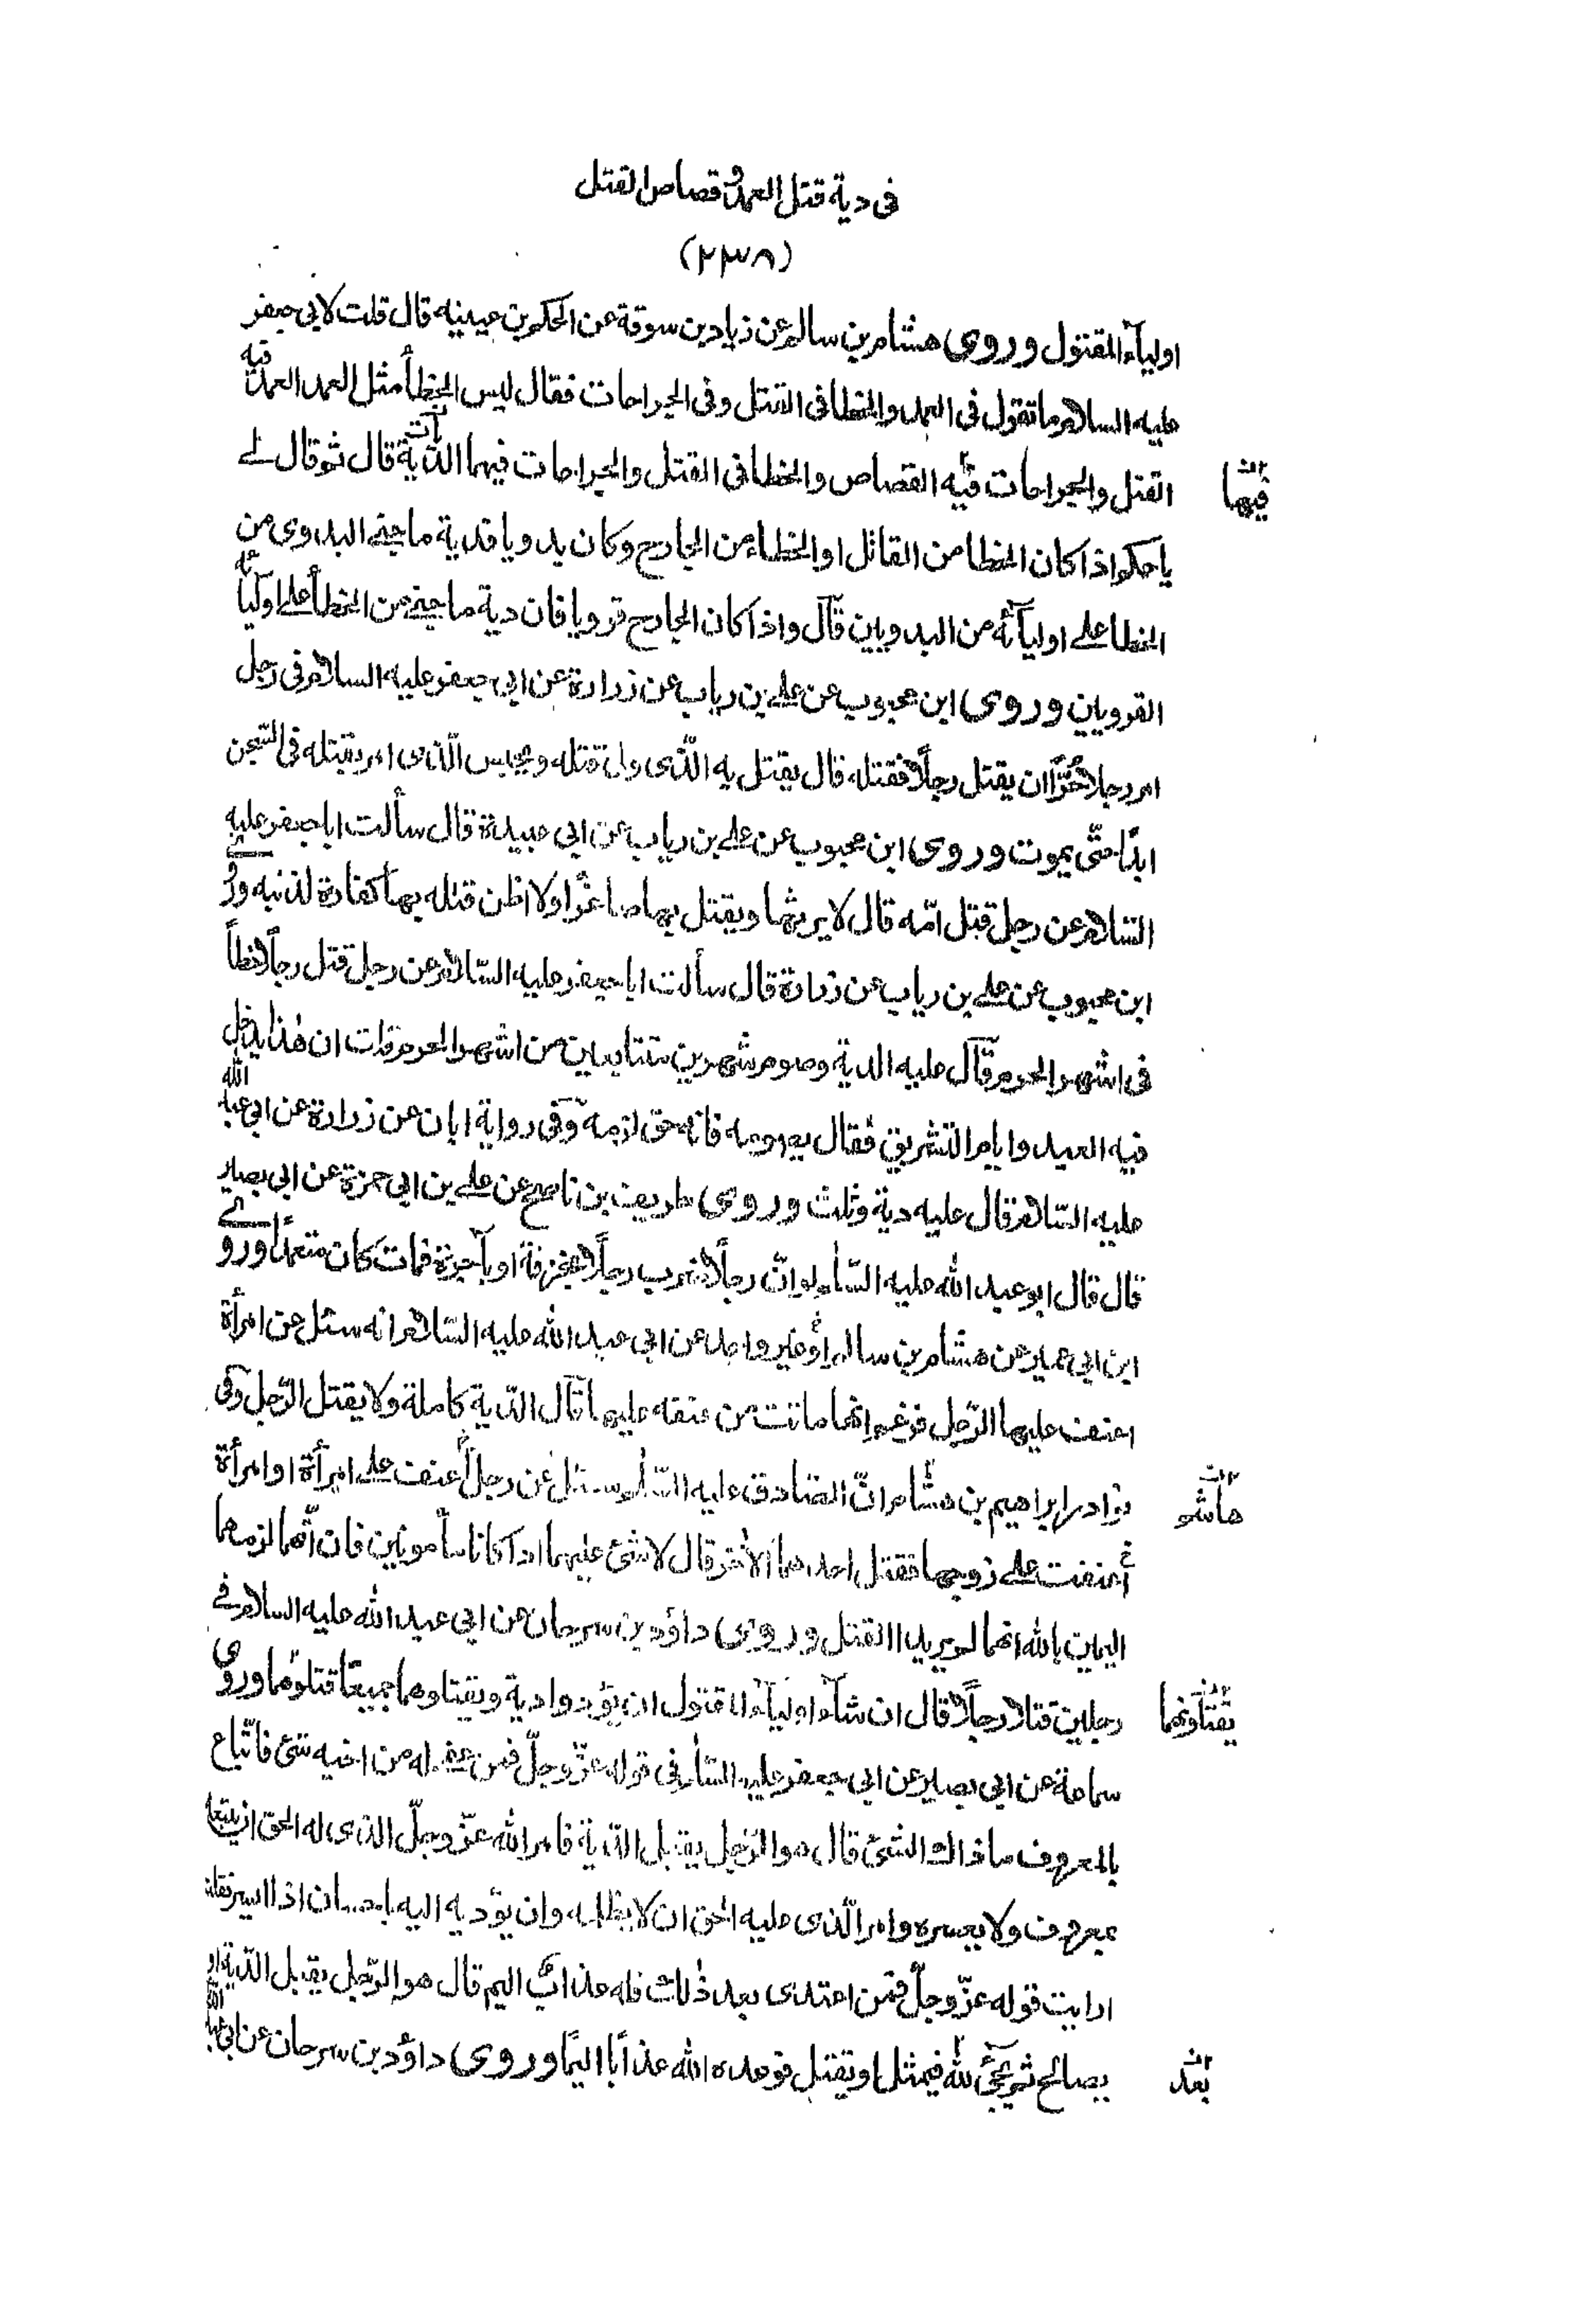 فى دية قتل العمد و قصاص القتل
(٢٣٨)
اولياء المقتول وروى هشام بن سالم عن زياد بن سوقة عن الحكم بن عيينه قال قلت لابى جعفر
عليه السلام ما تقول فى العمد والخطا فى القتل وفى الجراحات فقال ليس الخطأ مثل العمد العمد فيه
القتل والجراحات فيه القصاص والخطا فى القتل والجراحات فيهما الديات قال ثم قال لے
فيها
يا حكم اذا كان الخطا من القاتل او الخطاء من الجارح وكان بدويا فدية ما جنے البدوى من
الخطا علے اوليائه من البدويين قال واذا كان الجارح قرويا فان دية ما جنے من الخطأ علے اوليائه
القرويين وروى ابن محبوب عن علے بن رياب عن زرارة عن ابى جعفر عليه السلام فى رجل
امر رجلا حُرًّا ان يقتل رجلًا فقتله قال يقتل به الّذى ولى قتله ويحبس الّذى امر بقتله فى السّجن
ابدًا حتّى يموت وروى ابن محبوب عن علے بن رياب عن ابى عبيدة قال سألت ابا جعفر عليه
السّلام عن رجل قتل امّه قال لا يرثها ويقتل بها صاغرًا ولا اظن قتله بها كفارة لذنبه وروے
ابن محبوب عن علے بن رياب عن زرارة قال سألت ابا جعفر عليه السّلام عن رجل قتل رجلًا خطأً
فى اشهر الحرم قال عليه الدية وصوم شهرين متتابعين من اشهر الحرم قلت ان هٰذا يدخل
فيه العيد وايام التّشريق فقال يصومه فانه حق لزمه وفى رواية ابان عن زرارة عن ابى عبد الله
عليه السّلام قال عليه دية وثلث وروى ظريف بن ناصح عن علے بن ابى حمزة عن ابى بصير
قال قال ابو عبد الله عليه السّلم لو انّ رجلًا ضرب رجلًا بخزفة او بآجرة فمات كان متعمدًا وروے
ابن ابى عمير عن هشام بن سالم وغير واحد عن ابى عبد الله عليه السّلام انه سئل عن امرأة
اعنف عليها الرّجل فزعم انها ماتت من عنفه عليها قال الدّية كاملة ولا يقتل الرّجل وفى
نوادر ابراهيم بن هشام انّ الصّادق عليه السّلم سئل عن رجل أعنف علے امرأة او امرأة
هاشم
أعنفت علے زوجها فقتل احدهما الاخر قال لا شئ عليهما اذا كانا مأمونين فان اتّهما لزمهما
اليمين بالله انهما لم يريدا القتل وروى داؤد بن سرحان عن ابى عبد الله عليه السلام فے
رجلين قتلا رجلًا قال ان شاء اولياء المقتول ان يؤدوا دية ويقتلوهما جميعًا قتلوهما وروى
يقتلونهما
سماعة عن ابى بصير عن ابى جعفر عليه السّلم فى قوله عزّ وجلّ فمن عفى له من اخيه شئ فاتّباع
بالمعروف ما ذاك الشئ قال هو الرّجل يقبل الدّية فامر الله عزّ وجلّ الذى له الحق ان يتبعه
بمعروف ولا يعسره وامر الّذى عليه الحق ان لا يظلمه وان يؤديه اليه باحسان اذا ايسر فقلت
ارايت قوله عزّ وجلّ فمن اعتدى بعد ذٰلك فله عذاب اليم قال هو الرّجل يقبل الدّية او
يصالح ثم يجئ فيمثل او يقتل فوعده الله عذابا اليمًا وروى داؤد بن سرحان عن ابى عبد الله
بعد